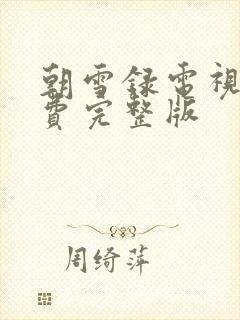 朝雪録電視
費完整版
周绮萍